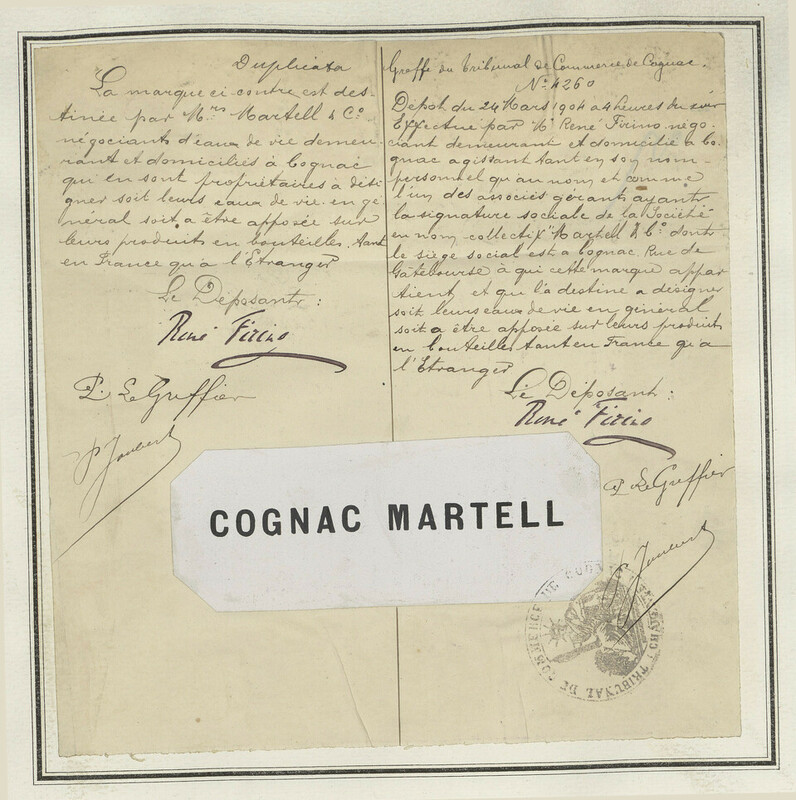 Duplicata
La marque ci contre est des-
tinée par Mrs Martell & Co
négociants d'eaux de vie demeu-
rant et domiciliés à Cognac
qui en sont propriétaires à dési-
gner soit leurs eaux de vie en gé-
néral soit a être apposée sur
leurs produits en bouteilles, tant
en France qu'à l'Etranger
Le Déposant :
René Firino
P. Le Greffier
P Joubert
Greffe du Tribunal de Commerce de Cognac.
No 4260
Dépot du 24 Mars 1904 a 4 heures du soir
Effectué par Mr René Firino négo-
ciant demeurant et domicilié à Co-
gnac agissant tant en son nom-
personnel qu'au nom et comme
l'un des associés gérants ayant
la signature sociale de la Société
en nom collectif "Martell & Co" dont
le siège social est a Cognac, Rue de
Gâtebourse à qui cette marque appar
tient et qui la destine a désigner
soit leurs eaux de vie en général
soit a être apposée sur leurs produits
en bouteilles tant en France qu'a
l'Etranger
Le Déposant :
René Firino
P. Le Greffier
P Joubert
COGNAC MARTELL
TRIBUNAL DE COMMERCE DE COGNAC